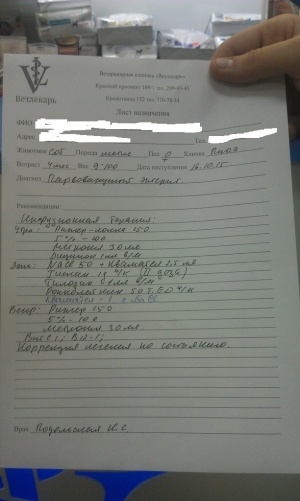 Ветлекарь
Ветеринарная клиника «Ветлекарь»
Красный проспект 169/1 тел.
Кропоткина 132 тел. 310-78-34
Лист назначения
ФИО
Адрес Тел.
Животное соб Порода мопс Пол ♀ Кличка
Возраст 4 мес Вес 9.100 Дата поступления 16.10.15
Диагноз Парвовирусный энтерит
Рекомендации:
Инфузионная терапия:
Утро: Рингер-локка 150
5% - 100
30 мл
1 мл в/м
День: NaCl 50 + Квамател 1,5 мл
1 г в/к (II доза)
Тилозин 1 мл в/м
50 т. ЕД п/к
Квамател - 1
Вечер: Рингер 150
5% - 100
30 мл
Вит С 1; В12 - 1;
Коррекция лечения по состоянию.
Врач Подольская